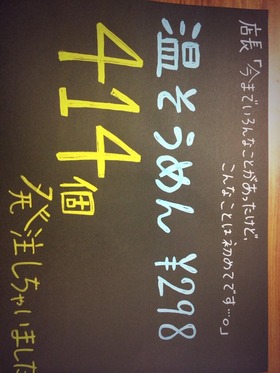 店長「今までいろんなことがあったけど、
こんなことは初めてです…。」
温そうめん ¥298
414個
発注しちゃいました